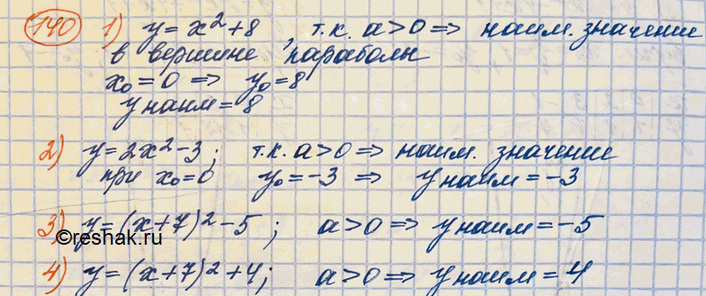 140 1) y = x² + 8 , т.к. a > 0 => наим. значение
в вершине параболы
x₀ = 0 => y₀ = 8
y наим = 8
2) y = 2x² - 3; т.к. a > 0 => наим. значение
при x₀ = 0 y₀ = -3 => y наим = -3
3) y = (x + 7)² - 5; a > 0 => y наим = -5
©reshak.ru
4) y = (x + 7)² + 4; a > 0 => y наим = 4